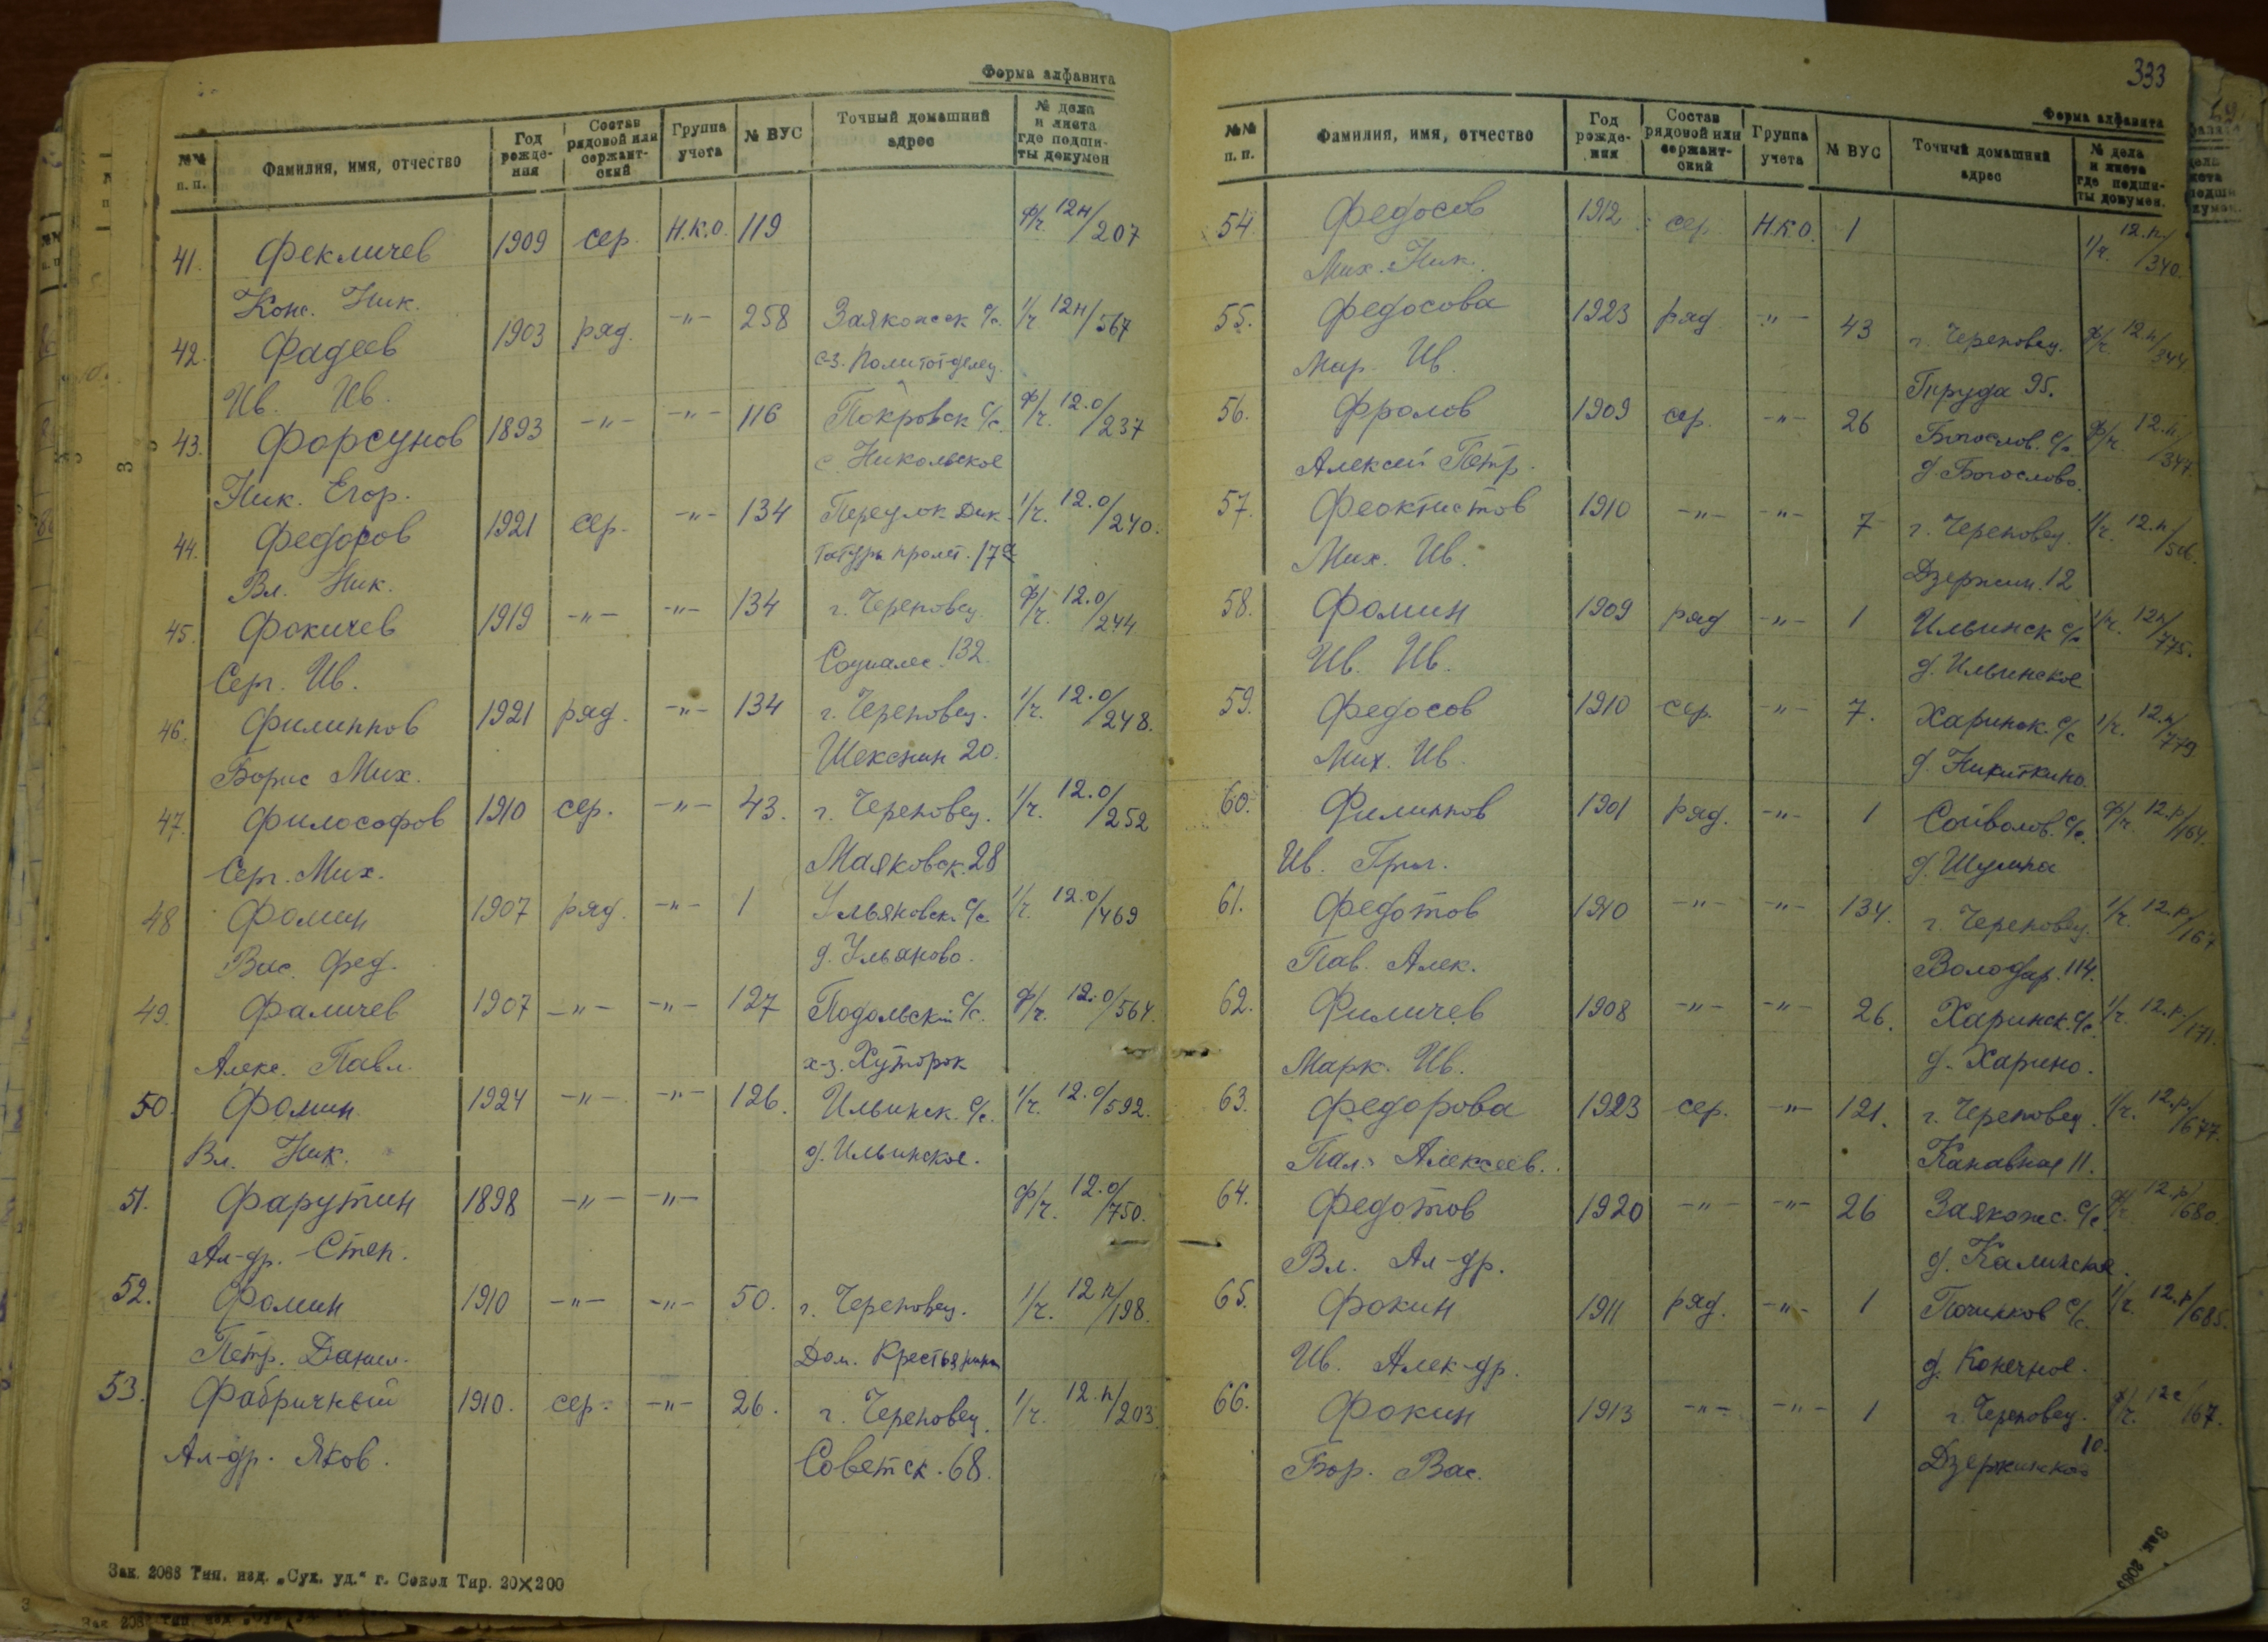 Форма алфавита
№№ п. п. Фамилия, имя, отчество Год рожде-ния Состав рядовой или сержант-ский Группа учета № ВУС Точный домашний адрес № дела и листа где подши-ты докумен
41. Фекличев 1909 сер. Н.К.О. 119 ф/ч. 12н/207
Конс. Ник.
42. Фадеев 1903 ряд. -"- 258 Заякошск с/с. 1/ч 12н/567
Ив. Ив. с-з. Политотделец.
43. Форсунов 1893 -"- -"- 116 Покровск с/с. ф/ч. 12.о/237
Ник. Егор. с. Никольское
44. Федоров 1921 сер. -"- 134 Переулок Дик 1/ч. 12.о/240.
Вл. Ник. татуры пролет. 17а
45. Фокичев 1919 -"- -"- 134 г. Череповец. ф/ч. 12.о/244
Серг. Ив. Социалис. 132.
46. Филиппов 1921 ряд. -"- 134 г. Череповец. 1/ч. 12.о/248.
Борис Мих. Шекснин 20.
47. Философов 1910 сер. -"- 43. г. Череповец. 1/ч. 12.о/252
Серг. Мих. Маяковск. 28
48 Фомин 1907 ряд. -"- 1 Ульяновск. с/с. 1/ч. 12.о/469
Вас. Фед. д. Ульяново.
49. Фаличев 1907 -"- -"- 127 Подольский с/с. ф/ч. 12.о/564.
Алекс. Павл. х-з. Хуторок
50. Фомин 1924 -"- -"- 126. Ильинск. с/с. 1/ч. 12.о/592.
Вл. Ник. д. Ильинское.
51. Фарутин 1898 -"- -"- ф/ч. 12.о/750.
Ал-др. Степ.
52. Фомин 1910 -"- -"- 50. г. Череповец. 1/ч. 12 п/198.
Петр. Данил. Дом. Крестьянина
53. Фабричный 1910. сер. -"- 26. г. Череповец. 1/ч. 12.п/203
Ал-др. Яков. Советск. 68.
Зак. 2088 Тип. изд. „Сух. уд.“ г. Сокол Тир. 20×200
333
Форма алфавита
№№ п. п. Фамилия, имя, отчество Год рожде-ния Состав рядовой или сержант-ский Группа учета № ВУС Точный домашний адрес № дела и листа где подши-ты докумен.
54. Федосов 1912 сер. Н.К.О. 1 1/ч. 12.п/340.
Мих. Ник.
55. Федосова 1923 ряд -"- 43 г. Череповец. ф/ч. 12.п/344
Мар. Ив. Труда 95.
56. Фролов 1909 сер. -"- 26 Богослов. с/с. ф/ч. 12.п/347.
Алексей Петр. д. Богослово.
57. Феоктистов 1910 -"- -"- 7 г. Череповец. 1/ч. 12.п/
Мих. Ив. Дзержин. 12
58. Фомин 1909 ряд -"- 1 Ильинск с/с 1/ч. 12п/775.
Ив. Ив. д. Ильинское
59. Федосов 1910 сер. -"- 7. Харинск. с/с 1/ч. 12.п/779
Мих. Ив. д. Никиткино.
60. Филиппов 1901 ряд. -"- 1 Сойволов. с/с. ф/ч. 12.р/164.
Ив. Григ. д. Шулма
61. Федотов 1910 -"- -"- 134. г. Череповец. 1/ч. 12.р./167
Пав. Алек. Володар. 114.
62. Филичев 1908 -"- -"- 26. Харинск. с/с. 1/ч. 12.р./171.
Марк. Ив. д. Харино.
63. Федорова 1923 сер. -"- 121. г. Череповец. 1/ч. 12.р./677.
Пал. Алексеев. Канавная 11.
64. Федотов 1920 -"- -"- 26 Заякошс. с/с. ф/ч. 12.р/680.
Вл. Ал-др. д. Калинское.
65. Фокин 1911 ряд. -"- 1 Починков с/с. 1/ч. 12.р/685.
Ив. Алек-др. д. Конечное.
66. Фокин 1913 -"- -"- 1 г. Череповец. 1/ч. 12с/167.
Бор. Вас. Дзержинского 10.
Зак. 2088